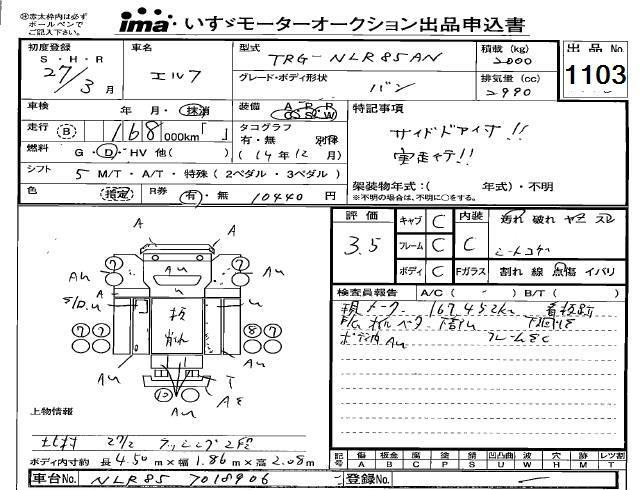 ㊟赤太枠内は必ず
ボールペンで
ご記入下さい。
ima・いすゞモーターオークション出品申込書
初度登録
S・H・R
27/3月
車名
エルフ
型式
TRG-NLR85AN
グレード・ボディ形状
バン
積載(kg)
2000
排気量(cc)
2990
出品No.
1103
車検 年・月・抹消
装備 A R R
C S L W
特記事項
サイドドアイサ!!
実走行!!
走行 B 168 000km「 」
タコグラフ
有・無 別体
(14年12月)
燃料 G・D・HV 他( )
シフト 5 M/T・A/T・特殊(2ペダル・3ペダル)
色 指定 R券 有・無 10440円
架装物年式:( 年式)・不明
※不明の場合は、不明に○をする。
評価
3.5
キャブ C
フレーム C
ボディ C
内装
C
Fガラス
汚れ 破れ ヤニ スレ
シートコゲ
割れ 線 点傷 イバリ
検査員報告 A/C( - ) B/T( )
現トーク 167452km
ボディ内 AU
フレームSC
A
A
7
7
AU
AU
U
U
S/D.U
U
7 7
8 7
A
AU
AU
T
10
AE
上物情報
北村 27/2 ラッシング2段
ボディ内寸約 長4.50m×幅1.86m×高2.08m
記号 傷 板金 腐 塗 錆 凹凸曲 波 穴 跡 レツ割
A B C P S U W H M T
車台No. NLR85 7018906
登録No.